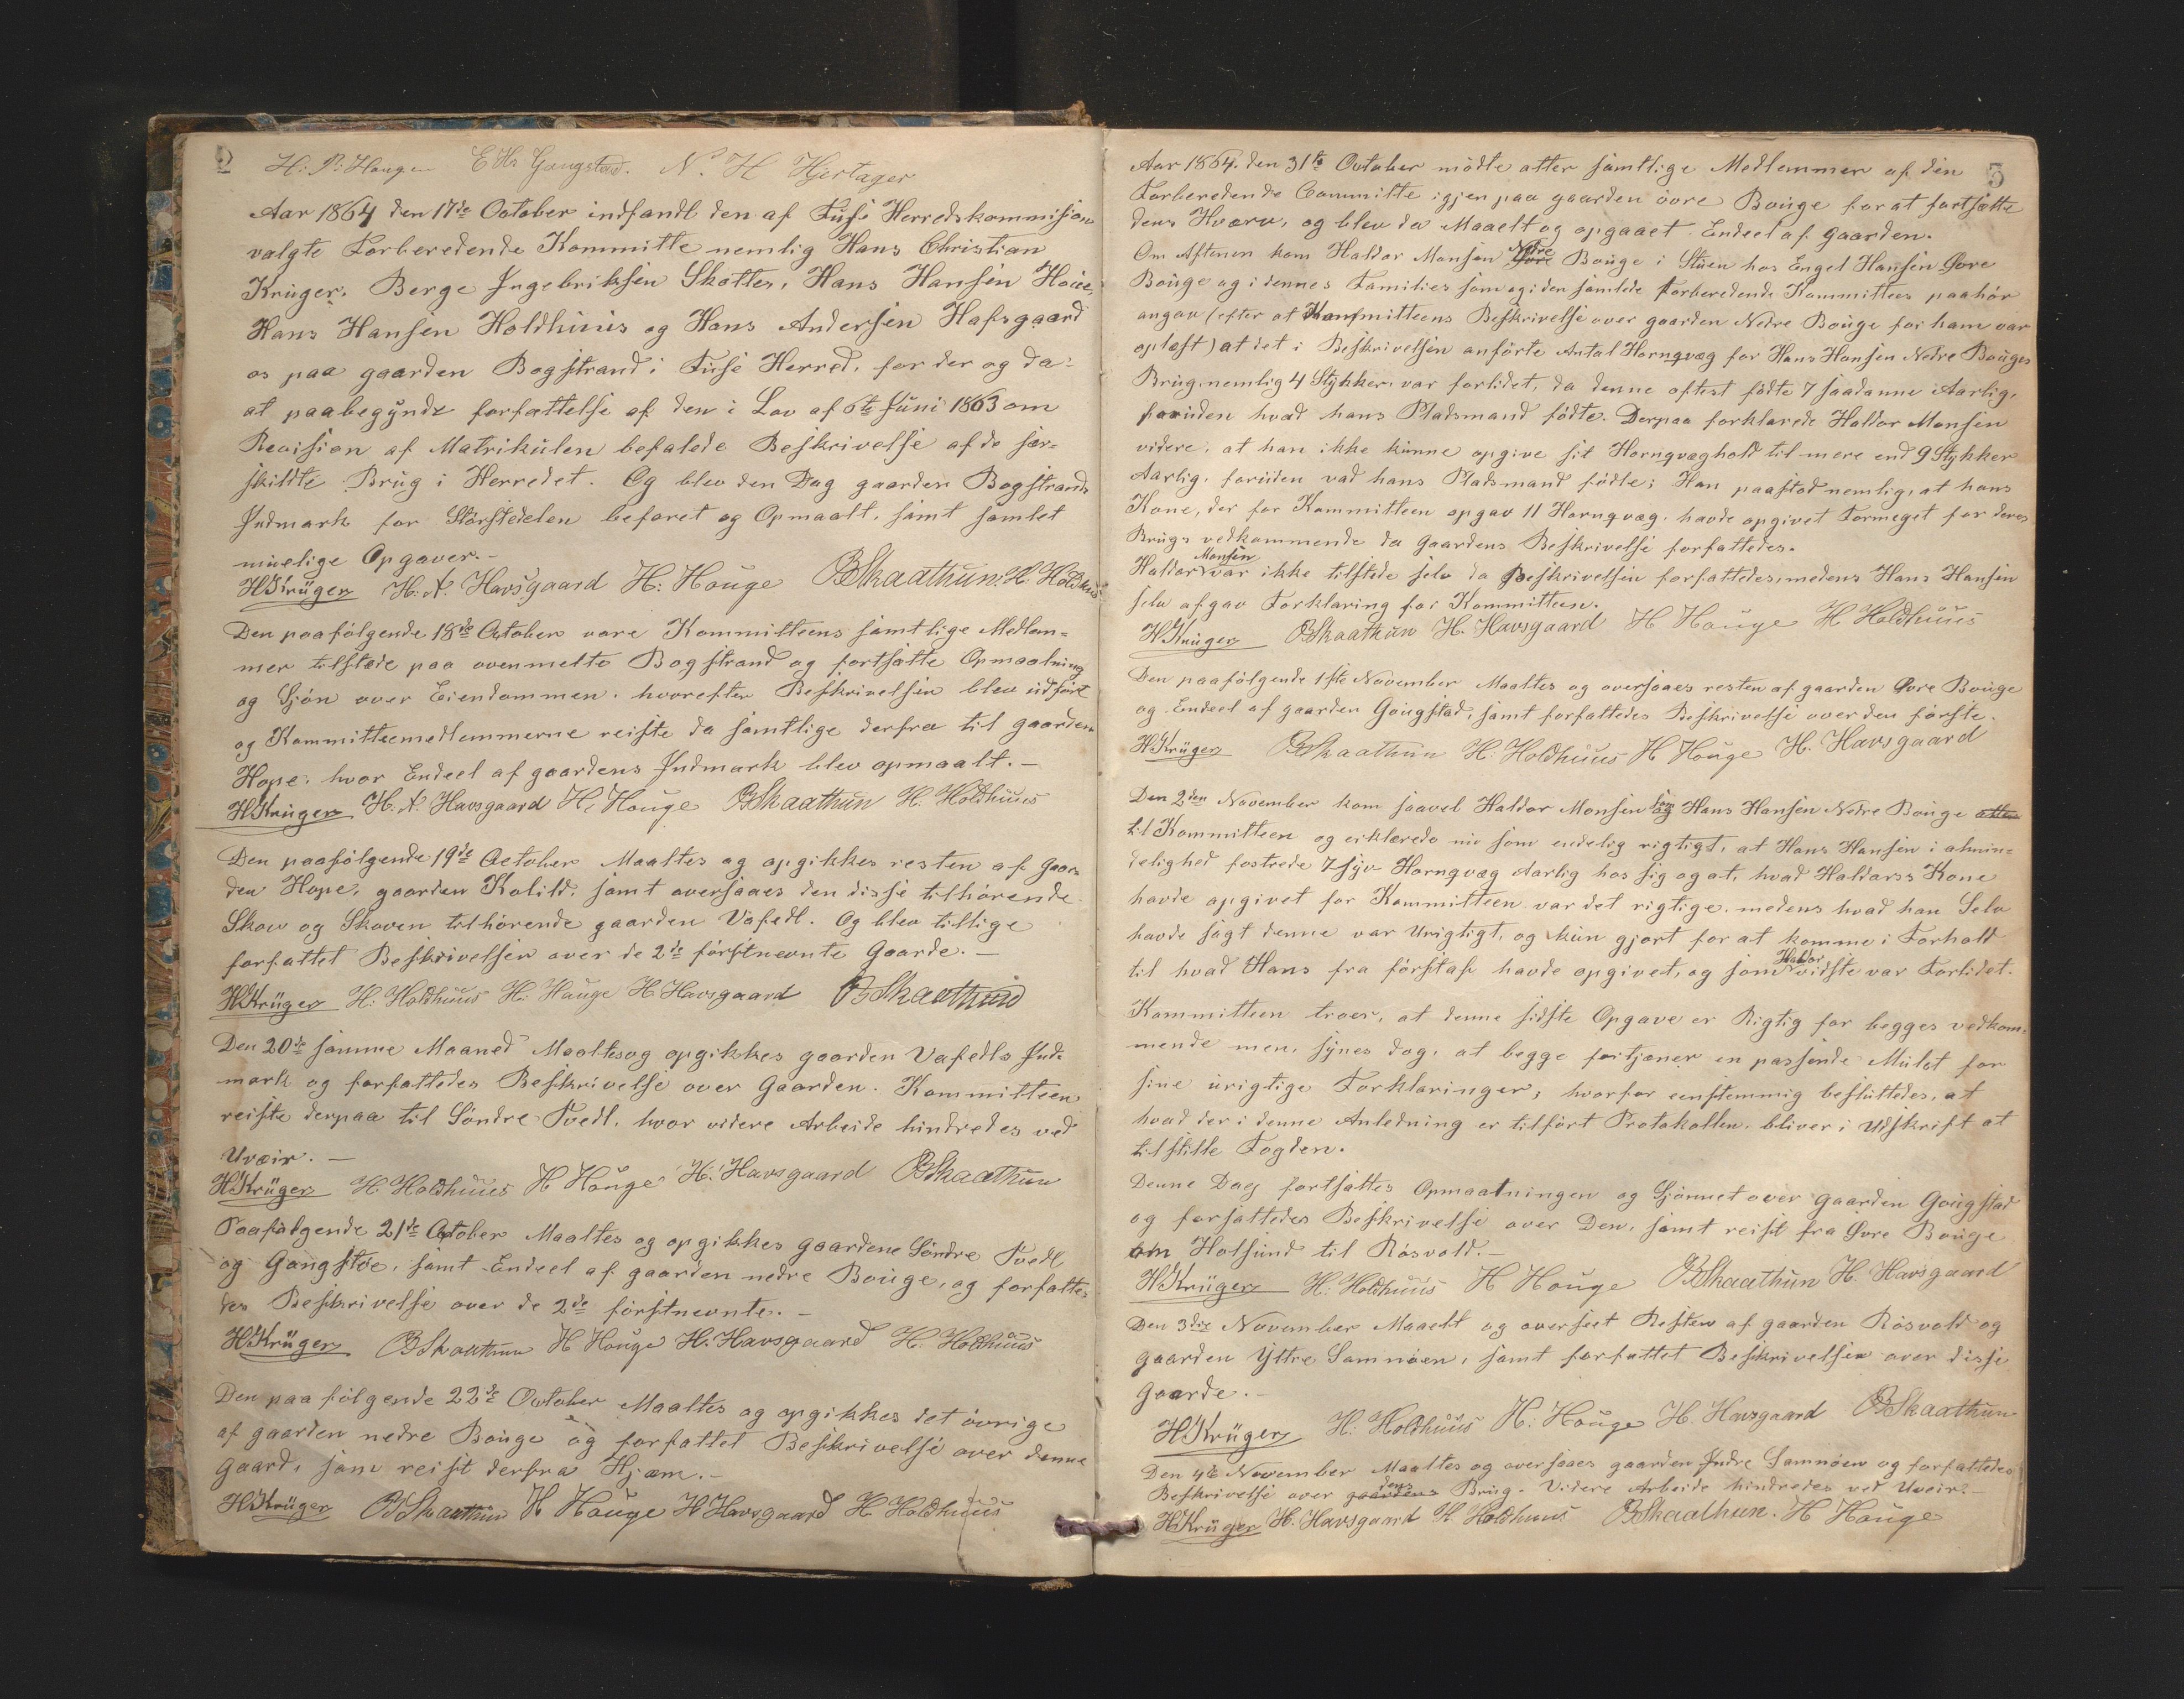 2
H. P. Haugen E Hs Gaugstad. N. H Hjertager
Aar 1864 den 17de October indfandt den af Fuse Herredskommision
valgte Forberedende Kommitte nemlig Hans Christian
Krüger, Berge Ingebriksen Skotten, Hans Hansen Houge,
Hans Hansen Holdhuus og Hans Andersen Hafsgaard
os paa gaarden Bogstrand i Fuse Herred, for der og da
at paabegynde forfattelse af den i Lov af 6te Juni 1863 om
Revision af Matrikulen befalede Beskrivelse af de sær-
skildte Brug i Herredet. Og blev den Dag gaarden Bogstrands
Indmark for Störstedelen befaret og Opmaalt, samt samlet
muelige Opgaver.-
HKrüger H. A. Havsgaard H: Houge BSkaathun H: Holdhuus
Den paafölgende 18de October vare Kommitteens samtlige Medlem-
mer tilstæde paa ovenmelte Bogstrand og fortsatte Opmaalning
og Sjön over Eiendommen, hvorefter Beskrivelsen blev udfört
og Kommitteemedlemmerne reiste da samtlige derfra til gaarden
Hope, hvor Endeel af gaardens Indmark blev opmaalt.-
HKrüger H. A. Havsgaard H. Houge BSkaathun H. Holdhuus
Den paafölgende 19de October Maaltes og opgikkes resten af Gaar-
den Hope, gaarden Kolild, samt oversaaes den disse tilhörende
Skov og Skoven tilhörende gaarden Vafedl. Og blev tillige
forfattet Beskrivelsen over de 2de förstnevnte Gaarde.-
HKrüger H: Holdhuus H: Hauge H. Havsgaard BSkaathun
Den 20de samme Maaned Maaltes og opgikkes gaarden Vafedls Ind-
mark og forfattedes Beskrivelse over Gaarden. Kommitteen
reiste derpaa til Söndre Tvedt, hvor videre Arbeide hindredes ved
Uveir.-
HKrüger H. Holdhuus H Houge H. Havsgaard BSkaathun
Paafölgende 21de October Maaltes og opgikkes gaardene Söndre Tvedt
og Gangstöe, samt Endeel af gaarden nedre Bouge, og forfatte-
des Beskrivelse over de 2de förstnevnte.-
HKrüger BSkaathun H Houge H. Havsgaard H. Holdhuus
Den paa fölgende 22de October Maaltes og opgikkes det övrige
af gaarden nedre Bouge og forfattet Beskrivelse over denne
gaard, sam reist derfra Hjæm.-
HKrüger BSkaathun H Houge H Havsgaard H Holdhuus
3
Aar 1864. den 31te October mödte atter samtlige Medlemmer af den
Forberedende Committe igjen paa gaarden övre Bouge for at fortsætte
dens Hværv, og blev da Maaelt og opgaaet Endeel af gaarden.
Om Aftenen kom Haldor Monsen Nedre Bouge i Stuen hos Engel Hansen Övre
Bouge og i dennes Families som og i den samlede Forberedende Kommittees paahör
angav (efter at Kommitteens Beskrivelse over gaarden Nedre Bouge for ham var
oplæst) at det i Beskrivelsen anförte Antal Hornqvæg for Hans Hansen Nedre Bouges
Brug, nemlig 4 Stykker, var forlidet, da denne oftest födte 7 saadanne Aarlig,
foruden hvad hans Pladsmand födte. Derpaa forklarede Haldor Monsen
videre, at han ikke kunne opgive sit Hornqvæghold til mere end 9 Stykker
Aarlig, foruden vad hans Pladsmand födte; Han paastod nemlig, at hans
Kone, der for Kommitteen opgav 11 Hornqvæg, havde opgivet Formeget for deres
Brugs vedkommende da Gaardens Beskrivelse forfattedes.
Haldor Monsen var ikke tilstede selv da Beskrivelsen forfattedes, medens Hans Hansen
selv afgav Forklaring for Kommitteen.
HKrüger BSkaathun H. Havsgaard H Houge H Holdhuus
Den paafölgende 1ste November Maaltes og oversaaes resten af gaarden Övre Bouge
og Endeel af gaarden Gougstad, samt forfattedes Beskrivelse over den förste.
HKrüger BSkaathun H: Holdhuus H Houge H. Havsgaard
Den 2den November kom saavel Haldor Monsen som Hans Hansen Nedre Bouge atter
til Kommitteen og erklærede nu som endelig rigtigt, at Hans Hansen i almin-
delighed fostrede 7 syv Hornqvæg Aarlig hos sig og at, hvad Haldors Kone
havde opgivet for Kommitteen var det rigtige, medens hvad han Selv
havde sagt denne var Urigtigt, og kun gjort for at komme i Forhold
til hvad Hans fra förstaf havde opgivet, og som Haldor vidste var Forlidet.
Kommitteen troer, at denne sidste Opgave er Rigtig for begges vedkom-
mende men, synes dog, at begge fortjæner en passende Mulct for
sine urigtige Forklaringer, hvorfor eenstemmig besluttedes, at
hvad der i denne Anledning er tilfört Protokollen, bliver i Udskrift at
tilstille Fogden.
Denne Dag fortsattes Opmaalningen og Sjönnet over gaarden Gougstad
og forfattedes Beskrivelse over Den, samt reist fra Övre Bouge
om Holsund til Rösvold.-
HKrüger H: Holdhuus H Houge BSkaathun H. Havsgaard
Den 3die November Maaelt og overseet Resten af gaarden Rösvold og
gaarden Yttre Samnöen, samt forfattet Beskrivelsen over disse
gaarde.-
HKrüger H: Holdhuus H: Houge H. Havsgaard BSkaathun
Den 4de November Maaltes og oversaaes gaarden Indre Samnöen og forfattedes
Beskrivelse over gaardens dens Brug. Videre Arbeide hindredes ved Uveir.-
HKrüger H. Havsgaard H. Holdhuus BSkaathun. H Houge